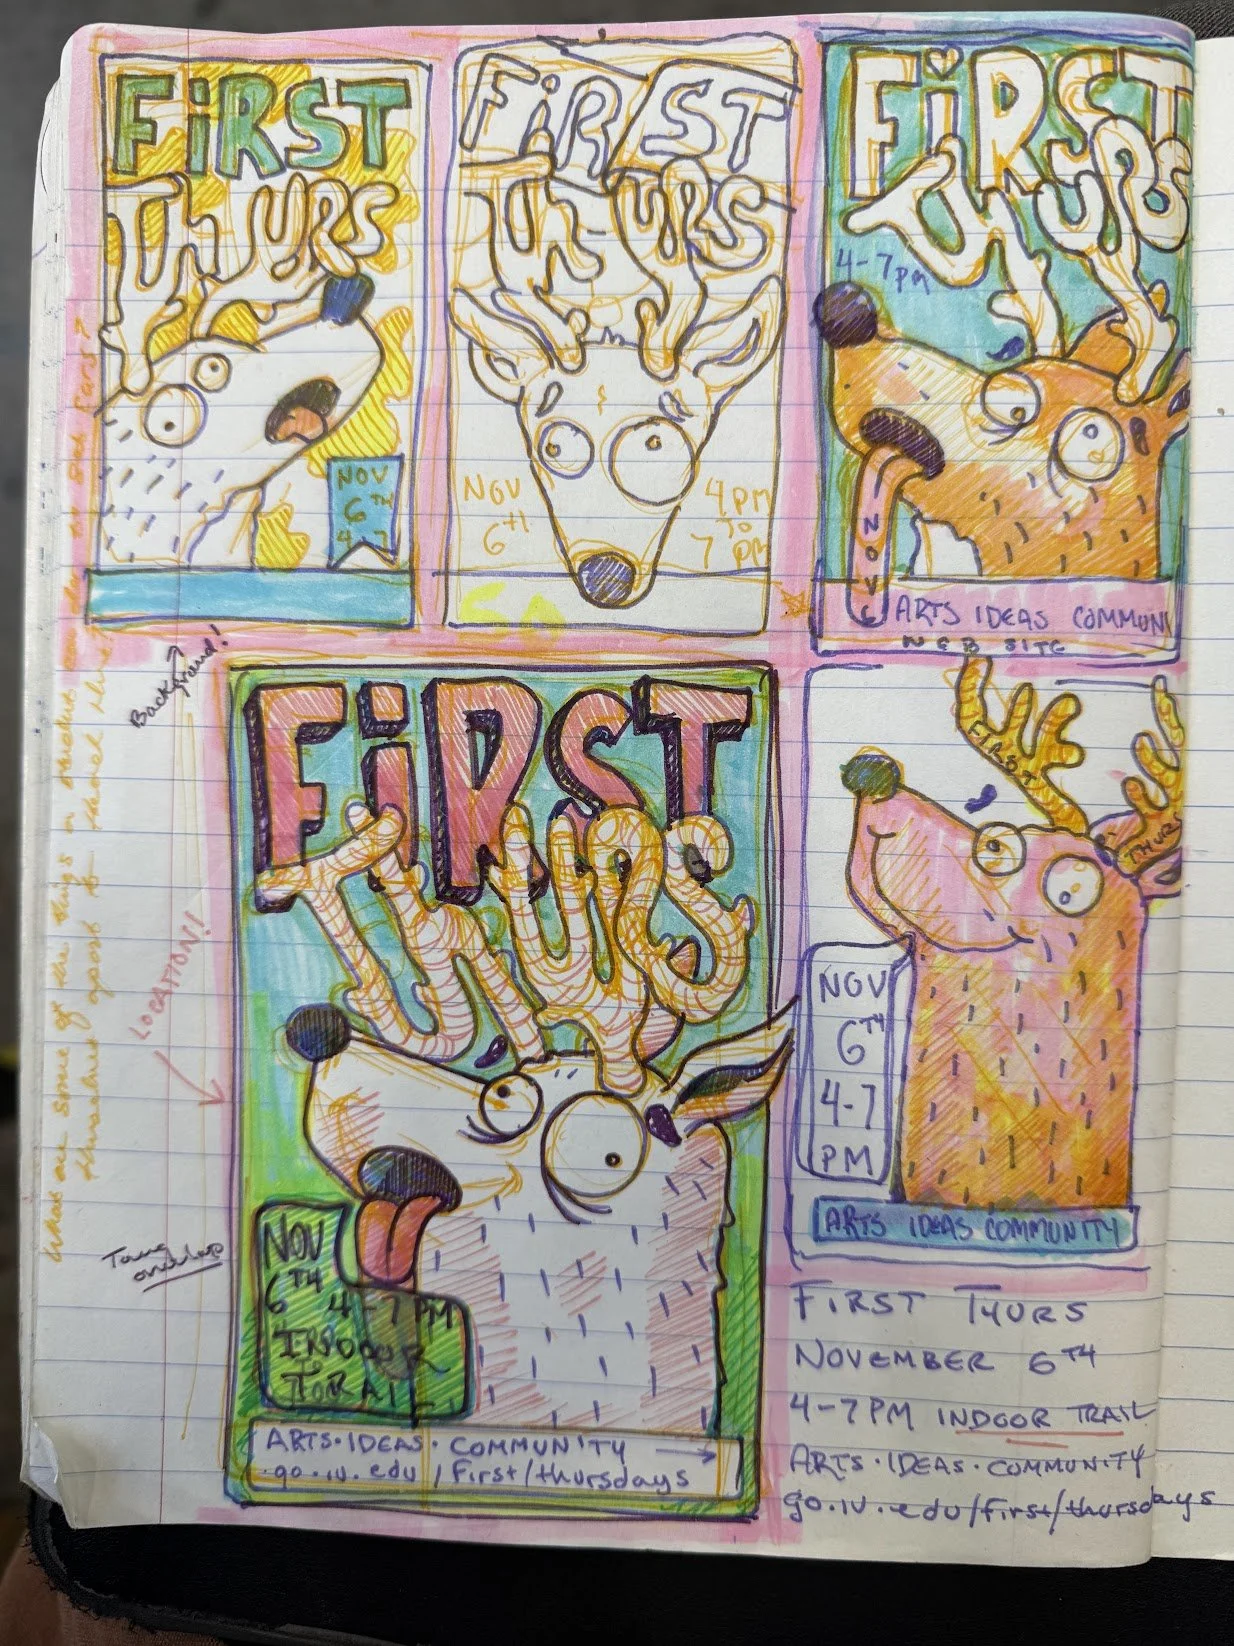 FiRST
THURS
NOV
6TH
4-7
FiRST
THURS
NOV
6TH
4 PM
TO
7
PM
FiRST
THURS
4-7
PM
NOV
6
ARTS IDEAS COMMUN
WEB SITE
Background!
LOCATION!
What are some of the things or
themselves apart
FiRST
THURS
NOV
6TH 4-7 PM
INDOOR
ARTS·IDEAS·COMMUNITY
go.iu.edu/first/thursdays
FIRST
THURS
NOV
6TH
4-7
PM
ARTS IDEAS COMMUNITY
FIRST THURS
NOVEMBER 6TH
4-7PM INDOOR TRAIL
ARTS·IDEAS·COMMUNITY
go.iu.edu/first/thursdays